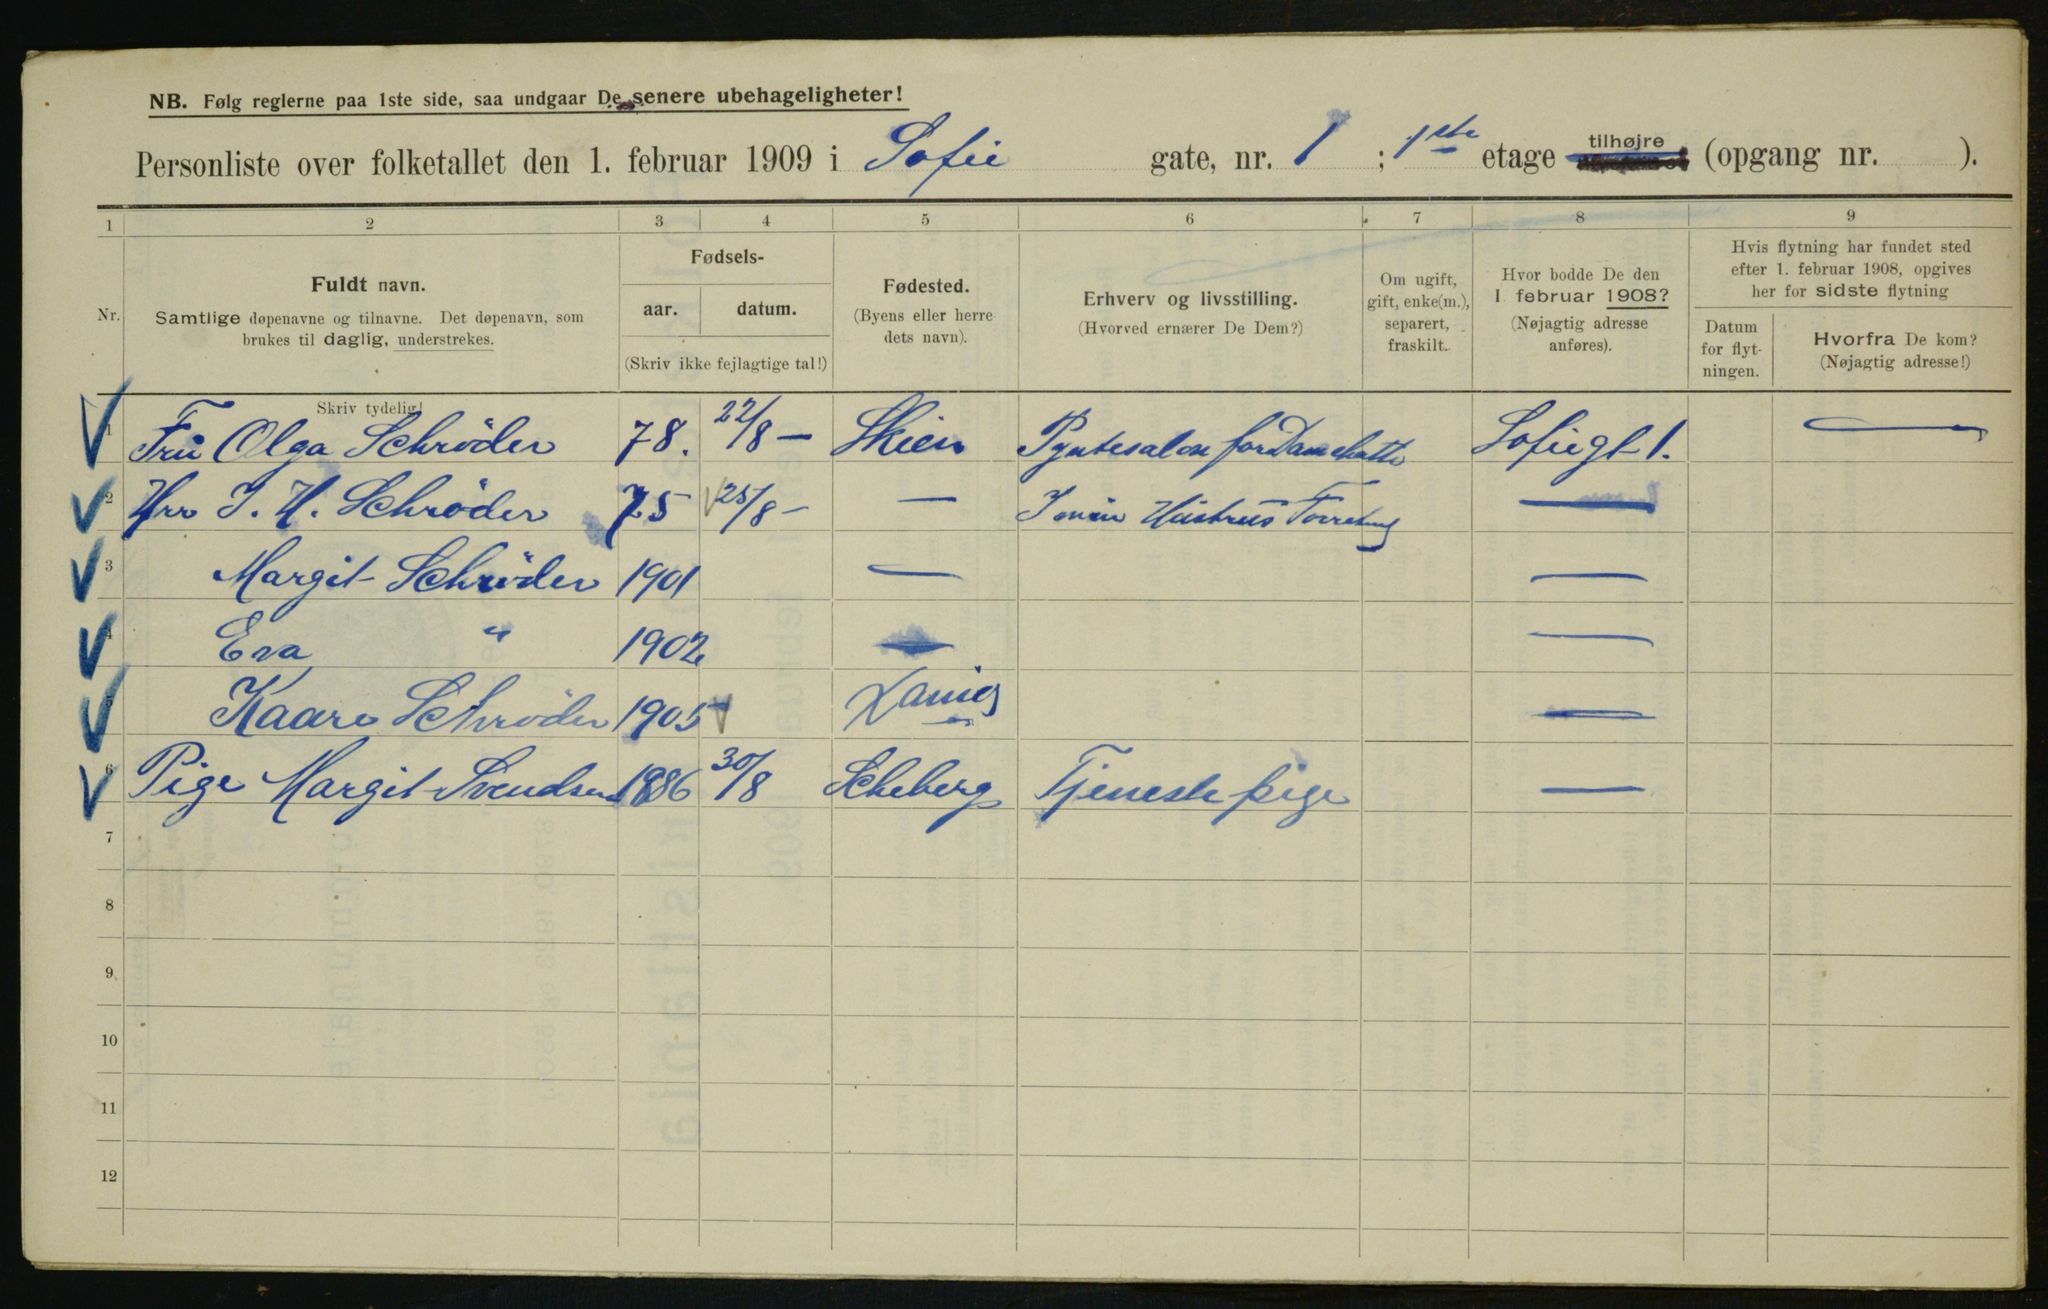 NB. Følg reglerne paa 1ste side, saa undgaar De senere ubehageligheter!
Personliste over folketallet den 1. februar 1909 i Sofie gate, nr. 1 ; 1ste etage tilhøjre (opgang nr. ).
1 2 3 4 5 6 7 8 9
Nr.
Fuldt navn.
Samtlige døpenavne og tilnavne. Det døpenavn, som
brukes til daglig, understrekes.
Skriv tydelig!
Fødsels-
aar. datum.
(Skriv ikke fejlagtige tal!)
Fødested.
(Byens eller herre
dets navn).
Erhverv og livsstilling.
(Hvorved ernærer De Dem?)
Om ugift,
gift, enke(m.),
separert,
fraskilt.
Hvor bodde De den
1 februar 1908?
(Nøjagtig adresse
anføres).
Hvis flytning har fundet sted
efter 1. februar 1908, opgives
her for sidste flytning
Datum
for flyt-
ningen.
Hvorfra De kom?
(Nøjagtig adresse!)
1 Fru Olga Schrøder 78. 22/8 — Skien Pyntesalon for Damehatte Sofiegt 1. —
2 Hrr J. H. Schrøder 75 25/8 — — I min Hustrus Forretning —
3 Margit Schrøder 1901 — —
4 Eva " 1902 — —
5 Kaare Schrøder 1905 —
6 Pige Margit Svendsen 1886 30/8 Scheberg Tjenestepige —
7
8
9
10
11
12